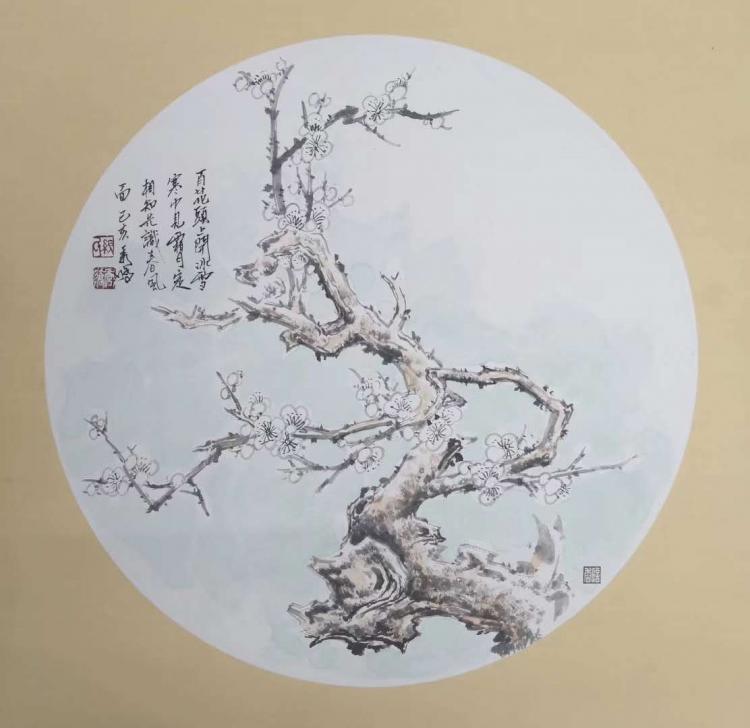 百花頭上開冰雪
寒中見霜月定
相知先識春風
面己亥